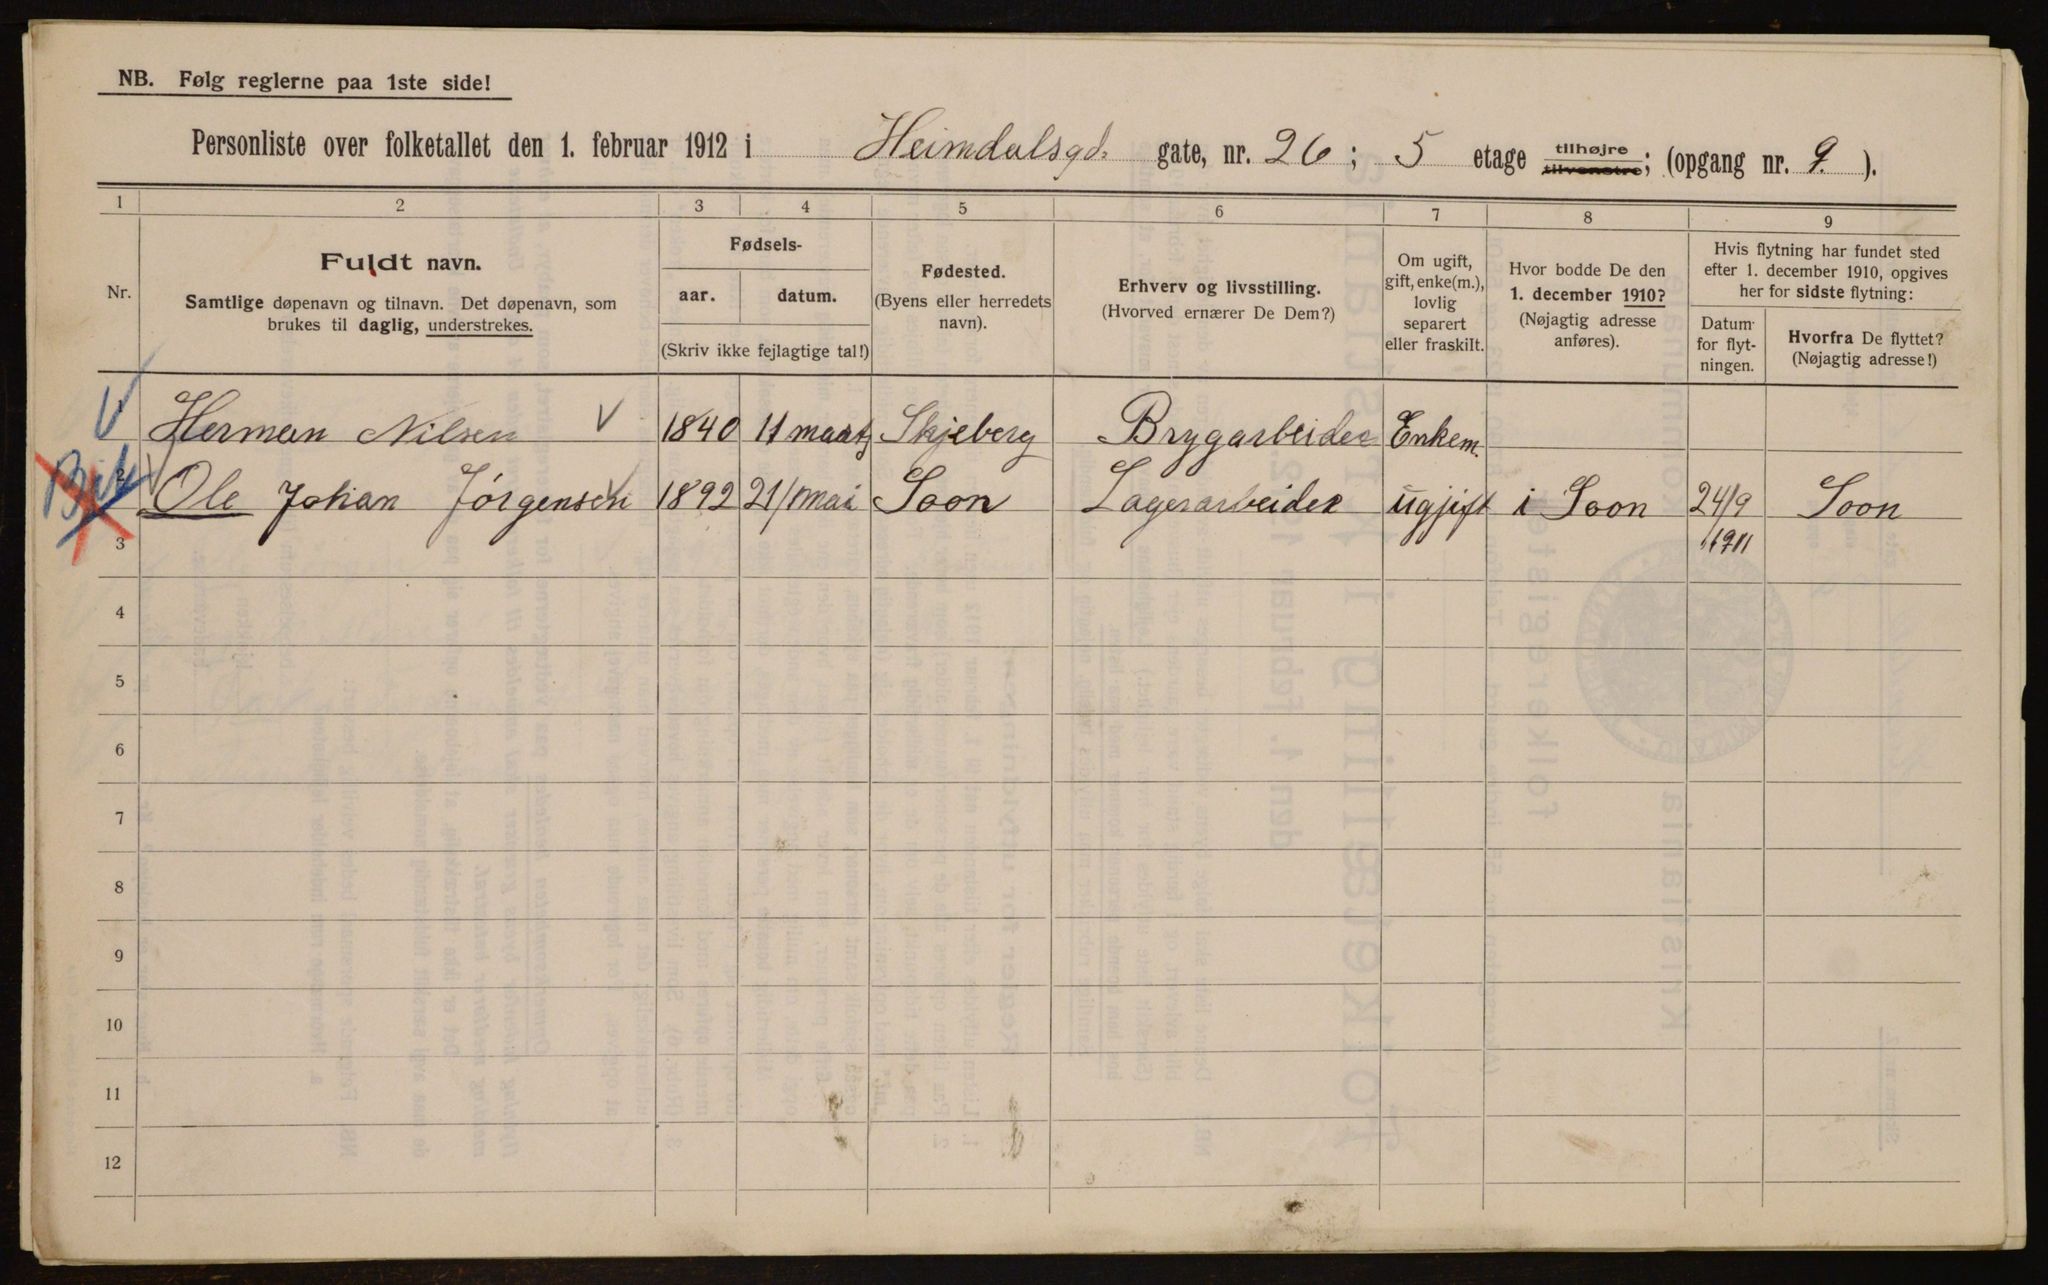 NB. Følg reglerne paa 1ste side!
Personliste over folketallet den 1. februar 1912 i Heimdalsgd. gate, nr. 26; 5 etage tilhøjre tilvenstre; (opgang nr. 9. ).
1 2 3 4 5 6 7 8 9
Nr.
Fuldt navn.
Samtlige døpenavn og tilnavn. Det døpenavn, som
brukes til daglig, understrekes.
Fødsels-
aar. datum.
(Skriv ikke fejlagtige tal!)
Fødested.
(Byens eller herredets
navn).
Erhverv og livsstilling.
(Hvorved ernærer De Dem?)
Om ugift,
gift, enke(m.),
lovlig
separert
eller fraskilt.
Hvor bodde De den
1. december 1910?
(Nøjagtig adresse
anføres).
Hvis flytning har fundet sted
efter 1. december 1910, opgives
her for sidste flytning:
Datum
for flyt-
ningen.
Hvorfra De flyttet?
(Nøjagtig adresse!)
1 Herman Nilsen 1840 11 marts Skjeberg Brygarbeider Enkem.
2 Ole Johan Jørgensen 1892 21/mai Soon Lagerarbeider ugjift i Soon 24/9 Soon
3 1911
4
5
6
7
8
9
10
11
12